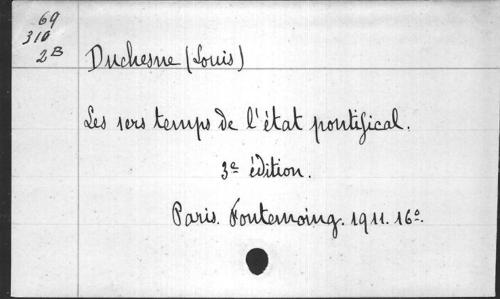 69
310
2B
Duchesne (Louis)
Les 1ers temps de l'état pontifical.
3e édition.
Paris. Fontemoing. 1911. 16º.